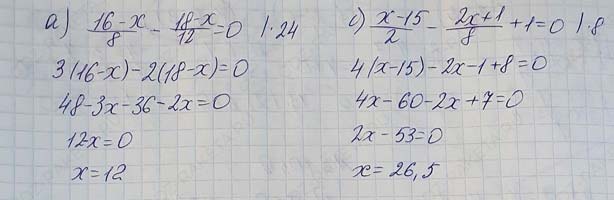 а) (16-x)/8 - (18-x)/12 = 0 |·24
3(16-x)-2(18-x)=0
48-3x-36-2x=0
12-x=0
x=12
c) (x-15)/2 - (2x+1)/8 + 1 = 0 |·8
4(x-15)-2x-1+8=0
4x-60-2x+7=0
2x-53=0
x=26,5